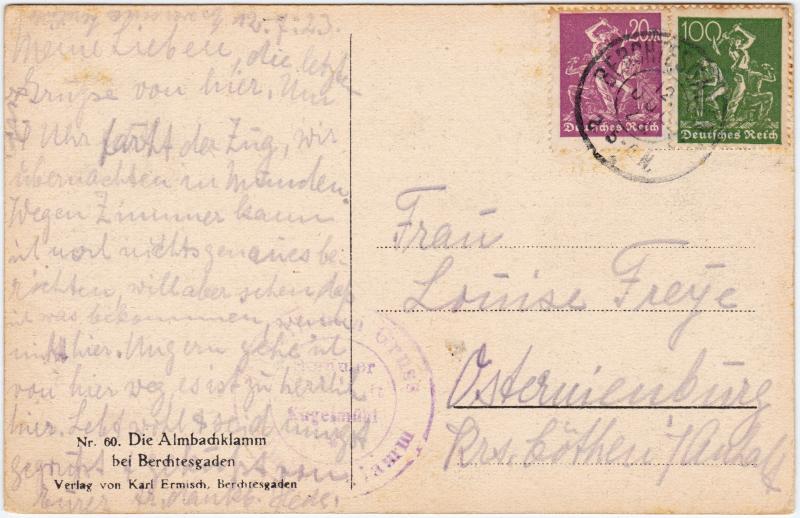 12.7.23.
Meine Lieben, die letzten
Grüsse von hier. Um
Uhr fährt der Zug, wir
übernachten in München.
Wegen Zimmer kann
ich noch nichts genaues be-
richten, will aber sehen daß
ich was bekommen, wenn
nicht hier. Ungern gehe ich
von hier weg es ist zu herrlich
hier. Lebt wohl & seid innigst
gegrüßt & geküsst von
Eurer dankb.
Nr. 60. Die Almbachklamm
bei Berchtesgaden
Verlag von Karl Ermisch, Berchtesgaden
20
Deutsches Reich
100
Deutsches Reich
Gruss
Kugelmühl
Frau
Louise Freye
Osternienburg
Krs. Cöthen i/Anhalt